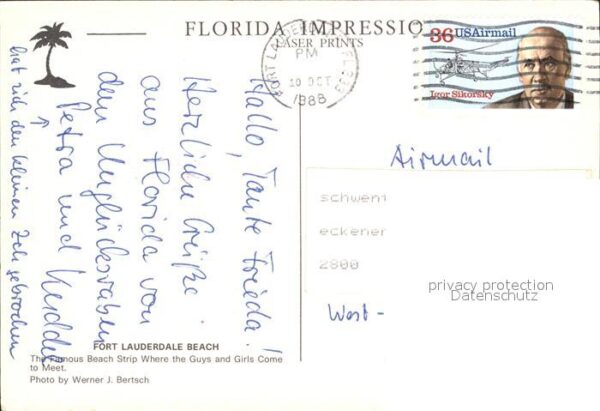 FLORIDA IMPRESSIO
LASER PRINTS
FORT LAUDERDALE
PM
10 OCT
1988
36 USAirmail
Igor Sikorsky
Airmail
schwent
eckener
2800
privacy protection
Datenschutz
West-
Hallo, Tante Frieda!
Herzliche Grüße
aus Florida von
den Unglücksraben
Petra und
hat sich den kleinen Zeh gebrochen
FORT LAUDERDALE BEACH
The Famous Beach Strip Where the Guys and Girls Come
to Meet.
Photo by Werner J. Bertsch